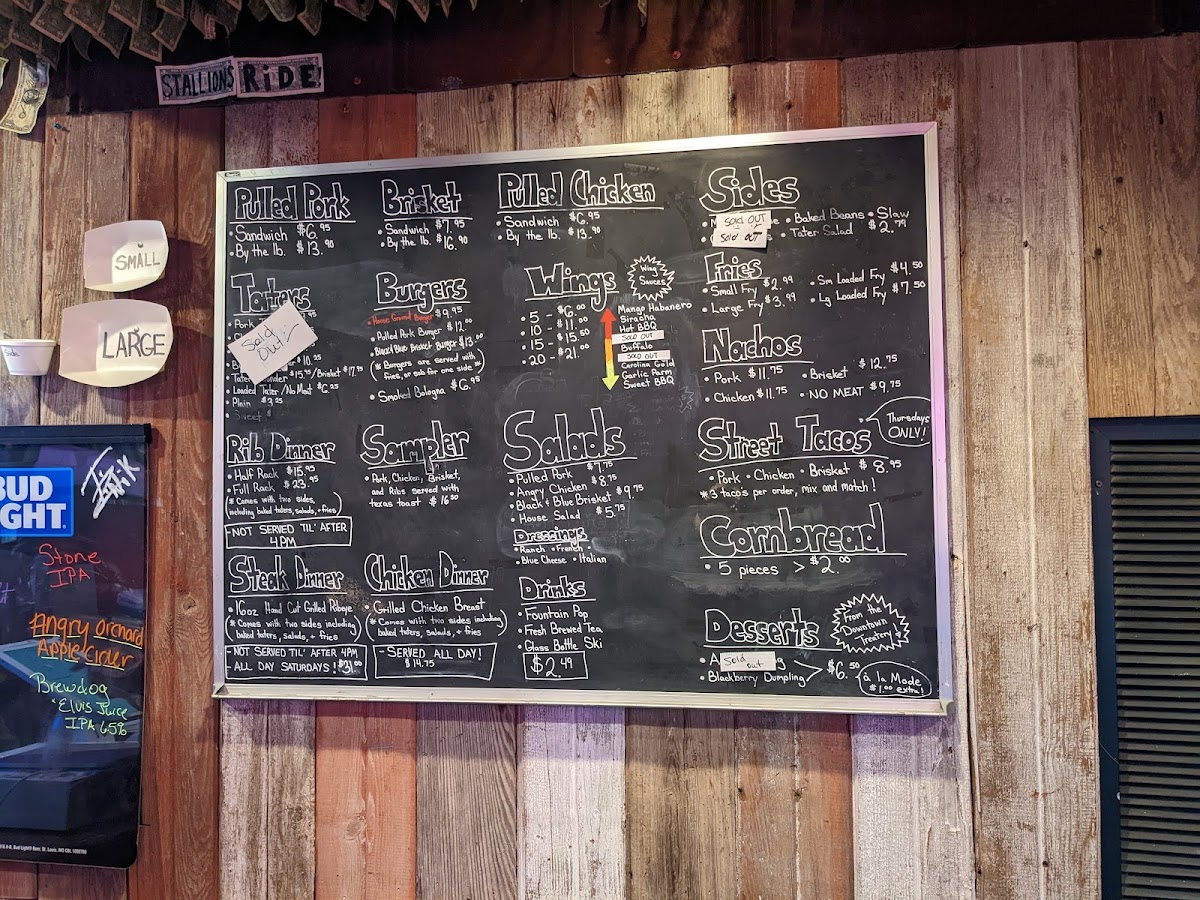 STALLIONS RiDE
SMALL
LARGE
Side
BUD
GHT.
Stone
IPA
Angry orchard
Apple Cider
Brewdog
"Elvis Juice
IPA 6.5%
Pulled Pork
• Sandwich $6.95
• By the lb. $13.90
Brisket
• Sandwich $7.95
• By the lb. $16.90
Pulled Chicken
• Sandwich $6.95
• By the lb. $13.90
Sides
SOLD OUT
SOLD OUT
• Baked Beans • Slaw
• Tater Salad $2.79
Taters
• Pork
Sold
Out!
$10.25
$15.75/Brisket $17.75
• Loaded Tater/No Meat $6.25
• Plain $3.25
• Sweet
Burgers
• House Ground Burger $9.95
• Pulled Pork Burger $12.00
• Black & Blue Brisket Burger $13.00
* Burgers are served with *
fries, or sub for one side
• Smoked Bologna $6.95
Wings
• 5 - $6.00
• 10 - $11.00
• 15 - $15.50
• 20 - $21.00
Wing
Sauces
Mango Habanero
Siracha
Hot BBQ
SOLD OUT
Buffalo
SOLD OUT
Carolina Gold
Garlic Parm
Sweet BBQ
Fries
• Small Fry $2.99
• Large Fry $3.99
• Sm Loaded Fry $4.50
• Lg Loaded Fry $7.50
Nachos
• Pork $11.75
• Brisket $12.75
• Chicken $11.75
• NO MEAT $9.75
Rib Dinner
• Half Rack $15.95
• Full Rack $23.95
* Comes with two sides,
including baked taters, salads, + fries
-NOT SERVED TIL' AFTER
4PM
Sampler
• Pork, Chicken, Brisket,
and Ribs served with
texas toast $16.50
Salads
• Pulled Pork $7.75
• Angry Chicken $8.75
• Black & Blue Brisket $9.75
• House Salad $5.75
Dressings
• Ranch • French •
• Blue Cheese • Italian
Street Tacos
Thursdays
ONLY!
• Pork • Chicken • Brisket $8.95
*3 taco's per order, mix and match!
Cornbread
• 5 pieces > $2.00
Steak Dinner
• 16oz Hand Cut Grilled Ribeye
* Comes with two sides including
baked taters, salads, + fries
-NOT SERVED TIL' AFTER 4PM
- ALL DAY SATURDAYS! $31.00
Chicken Dinner
• Grilled Chicken Breast
* Comes with two sides including
baked taters, salads, + fries
- SERVED ALL DAY!
$14.75
Drinks
• Fountain Pop
• Fresh Brewed Tea
• Glass Bottle Ski
$2.49
Desserts
From the
Downtown
Treatery!
• A Sold out g
• Blackberry Dumpling
$6.50
à la Mode
$1.00 extra!